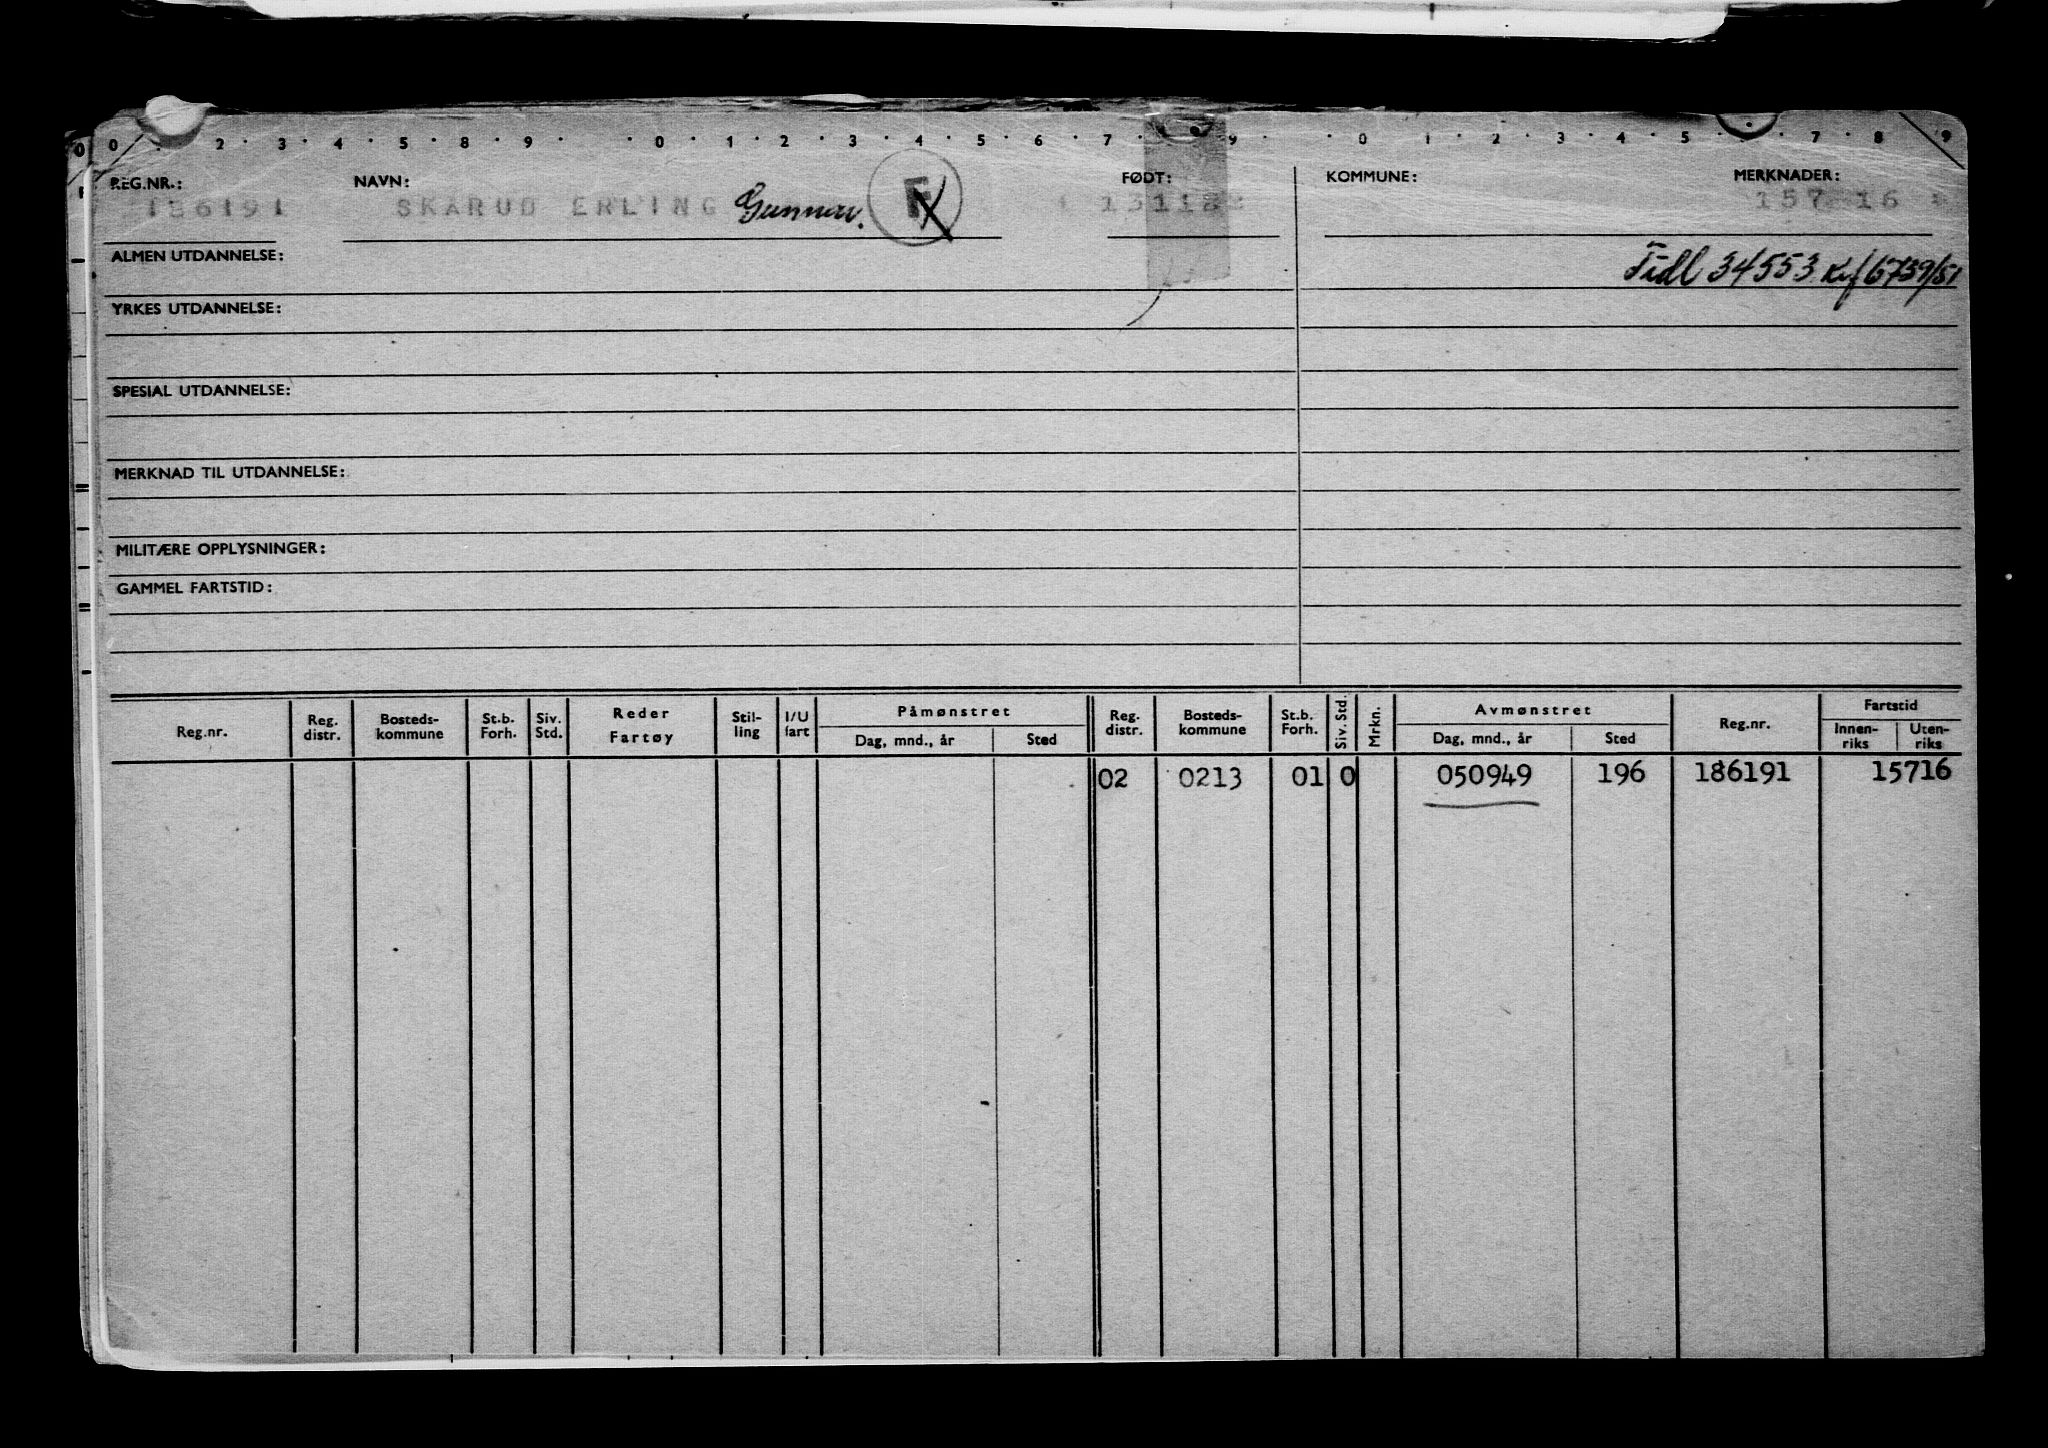 0 2 3 4 5 8 9 0 1 2 3 4 5 6 7 9 0 1 2 3 4 5 7 8 9
REG.NR.: NAVN: FØDT: KOMMUNE: MERKNADER:
186191 SKARUD ERLING Gunnar. F 157 16
ALMEN UTDANNELSE: Tidl 34553 Kf 6739/51
YRKES UTDANNELSE:
SPESIAL UTDANNELSE:
MERKNAD TIL UTDANNELSE:
MILITÆRE OPPLYSNINGER:
GAMMEL FARTSTID:
Reg.nr. Reg. distr. Bosteds- kommune St.b. Forh. Siv. Std. Reder Fartøy Stil- ling I/U fart Påmønstret Dag, mnd., år Sted Reg. distr. Bosteds- kommune St.b. Forh. Siv. Std. Mrkn. Avmønstret Dag, mnd., år Sted Reg.nr. Fartstid Innen- riks Uten- riks
02 0213 01 0 050949 196 186191 15716